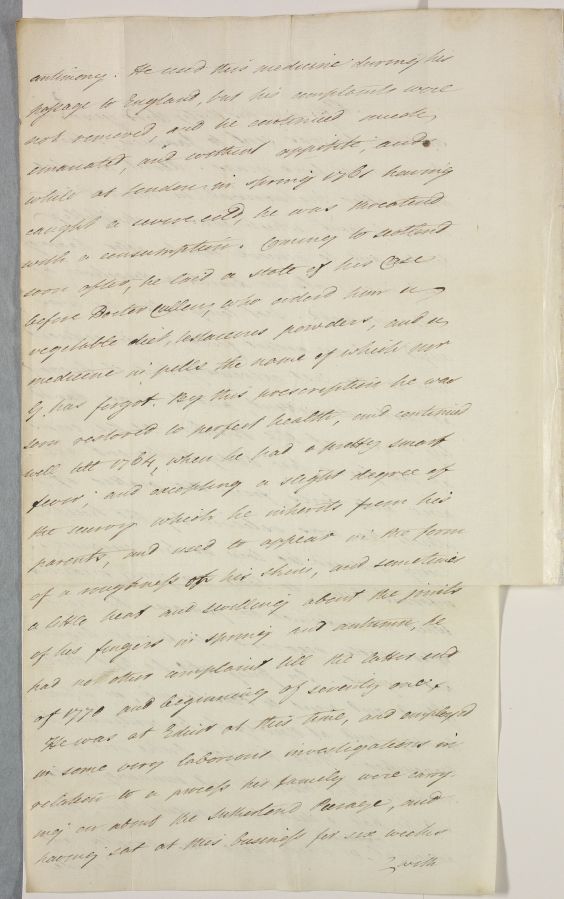 antimony. He used this medicine during his
passage to England, but his complaints were
not removed, and he continued weak,
emaciated, and without appetite, and
while at London in Spring 1761 having
caught a severe cold, he was threatend
with a consumption. Coming to Scotland
soon after, he laid a state of his Case
before Doctor Cullen, who orderd him a
vegetable diet, testaceous powders, and a
medicine in pills the name of which Mr
G. has forgot. By this prescription he was
soon restored to perfect health, and continued
well till 1764, when he had a pretty smart
fever; and excepting a slight degree of
the scurvy which he inherits from his
parents, and used to appear in the form
of a roughness of his skin, and sometimes
a little heat and swelling about the joints
of his fingers in spring and autumn, he
had no other complaint till the latter end
of 1770 and beginning of seventy one.
He was at Edinr at this time, and employed
in some very laborious investigations in
relation to a process his family were carry-
ing on about the Sutherland Peerage, and
having sat at this business for six weeks
with